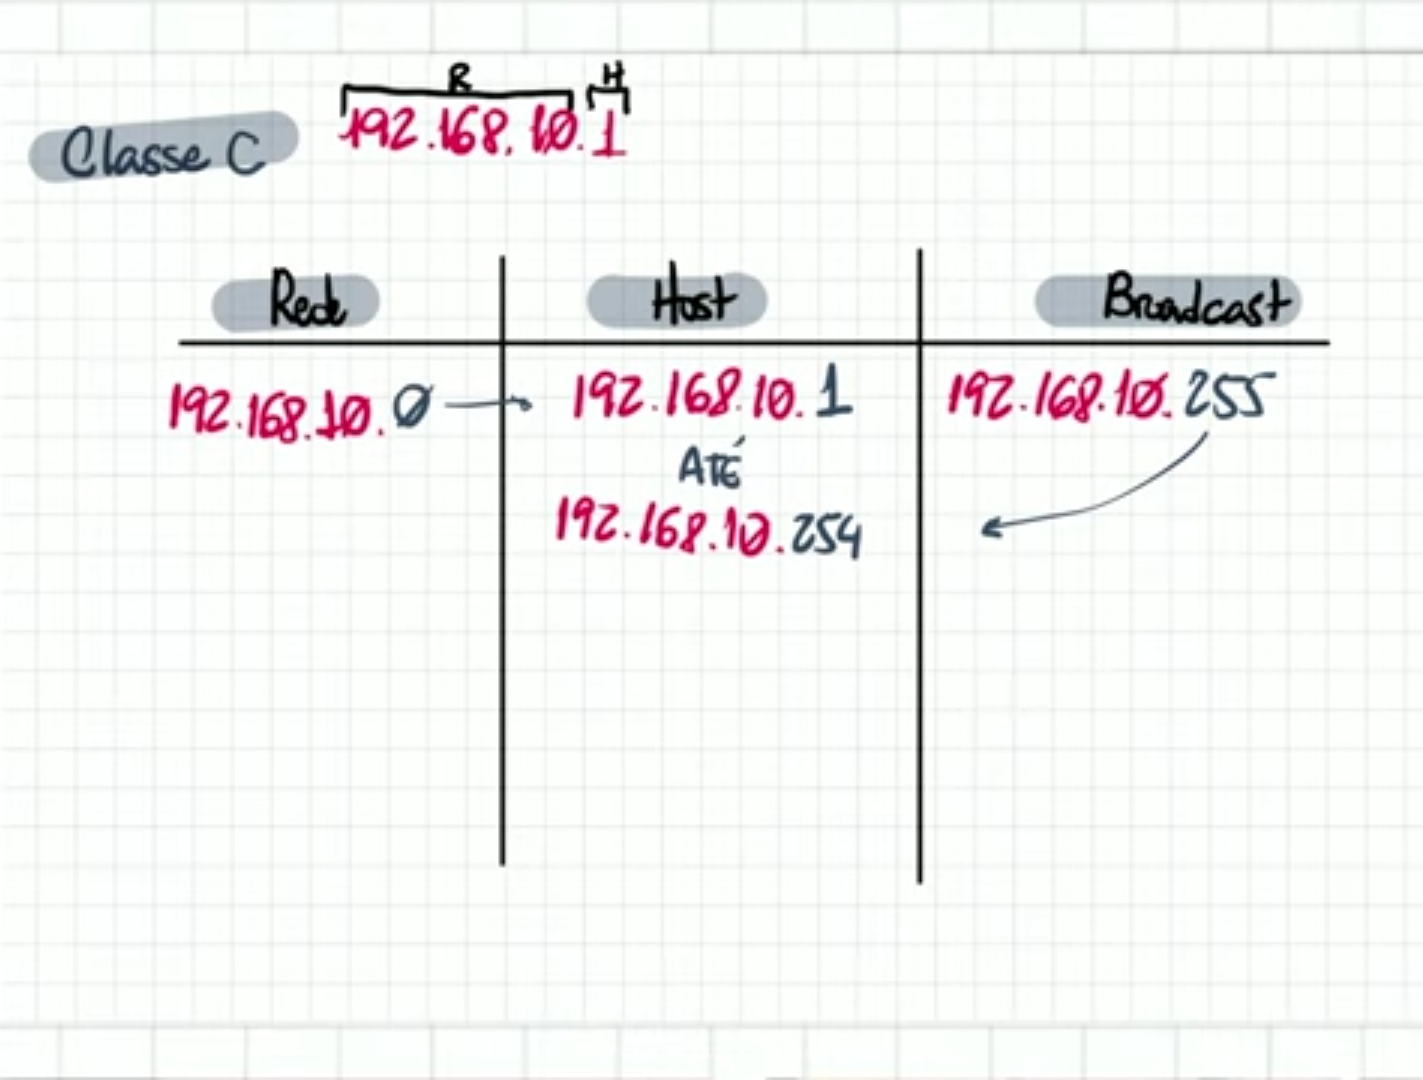 R H
Classe C 192.168.10.1
Rede Host Broadcast
192.168.10.0 192.168.10.1 192.168.10.255
ATÉ
192.168.10.254